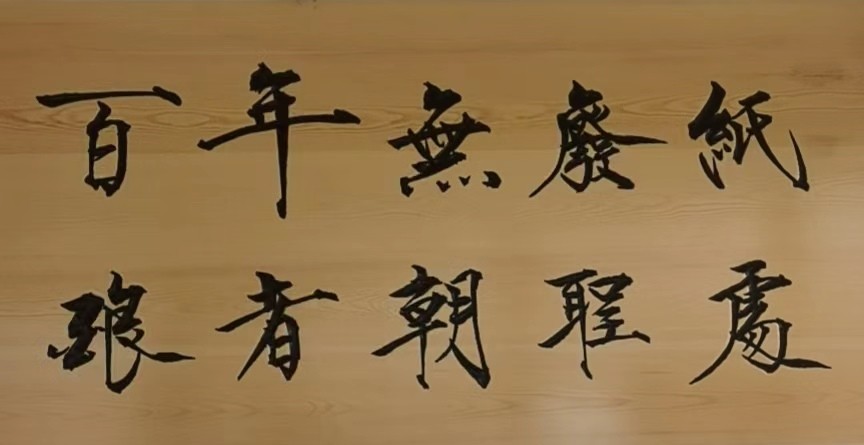 百年無廢紙
者朝聖處